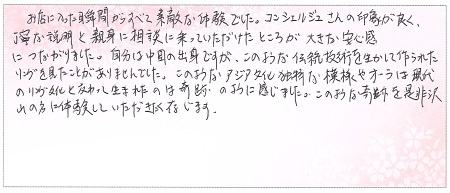 お店に入った瞬間からすべて素敵な体験でした。コンシェルジュさんの印象が良く、
丁寧な説明と親身に相談に乗っていただけたところが大きな安心感
につながりました。自分は中国の出身ですが、このような伝統技術を生かして作られた
リングを見たことがありませんでした。このようなアジア文化独特な模様やオーラは現代
のリング文化と交わって生まれたのは奇跡のように感じました。このような奇跡を是非沢
山の方に体験していただきたく存じます。